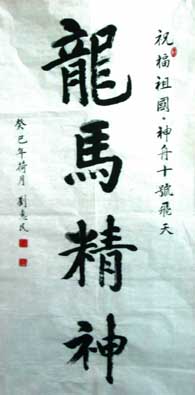 祝福祖國·神舟十號飛天
龍馬精神
癸巳年荷月 劉惠民